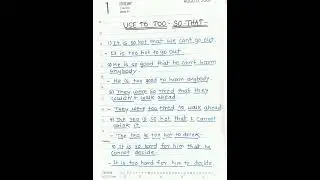 1
USE TO TOO - SO THAT -
1) It is so hot that we can't go out.
- It is too hot to go out.
2) He is so good that he can't harm
anybody.
- He is too good to harm anybody.
3) They were so tired that they
couldn't walk ahead
- They were too tired to walk ahead.
4) The tea is so hot that I cannot
drink it.
- The tea is too hot to drink.
5) It is so hard for him that he
cannot decide.
- It is too hard for him to decide.